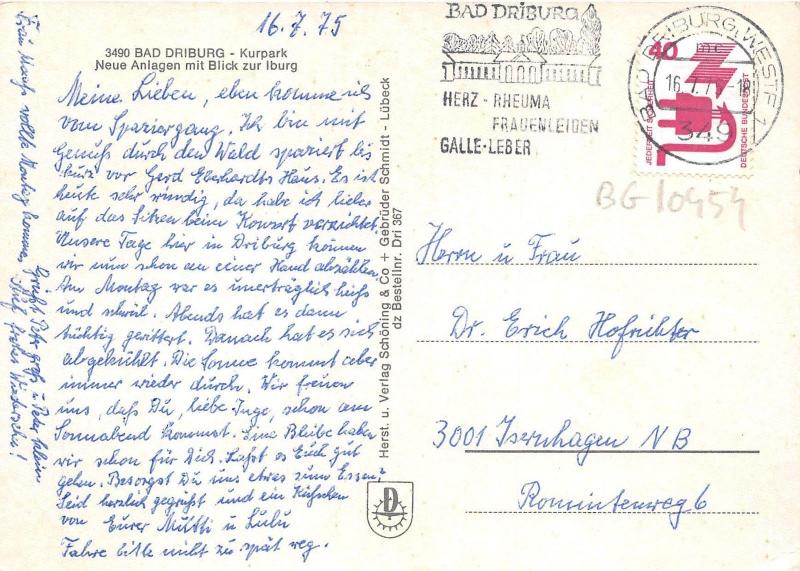 16.7.75
3490 BAD DRIBURG - Kurpark
Neue Anlagen mit Blick zur Iburg
Meine Lieben, eben komme ich
vom Spaziergang. Ich bin mit
Genuß durch den Wald spaziert bis
kurz vor Gerd Eberhardts Haus. Es ist
heute sehr windig, da habe ich lieber
auf das Sitzen beim Konzert verzichtet.
Unsere Tage hier in Driburg können
wir nun schon an einer Hand abzählen.
Am Montag war es unerträglich heiß
und schwül. Abends hat es dann
tüchtig gewittert. Danach hat es sich
abgekühlt. Die Sonne kommt aber
immer wieder durch. Wir freuen
uns, daß Du, liebe Inge, schon am
Sonnabend kommst. Eine Bleibe haben
wir schon für Dich. Laßt es Euch gut
gehen. Besorgst Du uns etwas zum Essen?
Seid herzlich gegrüßt und ein Küßchen
von Eurer Mutti u Lulu
Fahre bitte nicht zu spät weg.
Frau wollte Montag kommen,
Grüßt Peter groß u Peter klein
frohes Wiedersehn!
Herst. u. Verlag Schöning & Co + Gebrüder Schmidt - Lübeck
dz Bestellnr. Dri 367
D
BAD DRIBURG
HERZ - RHEUMA
FRAUENLEIDEN
GALLE-LEBER
BAD DRIBURG, WESTF 1
16.7.7 -18
349
40
JEDERZEIT SICHERHEIT
DEUTSCHE BUNDESPOST
BG10454
Herrn u Frau
Dr. Erich Hofrichter
3001 Isernhagen NB
Rominteweg 6